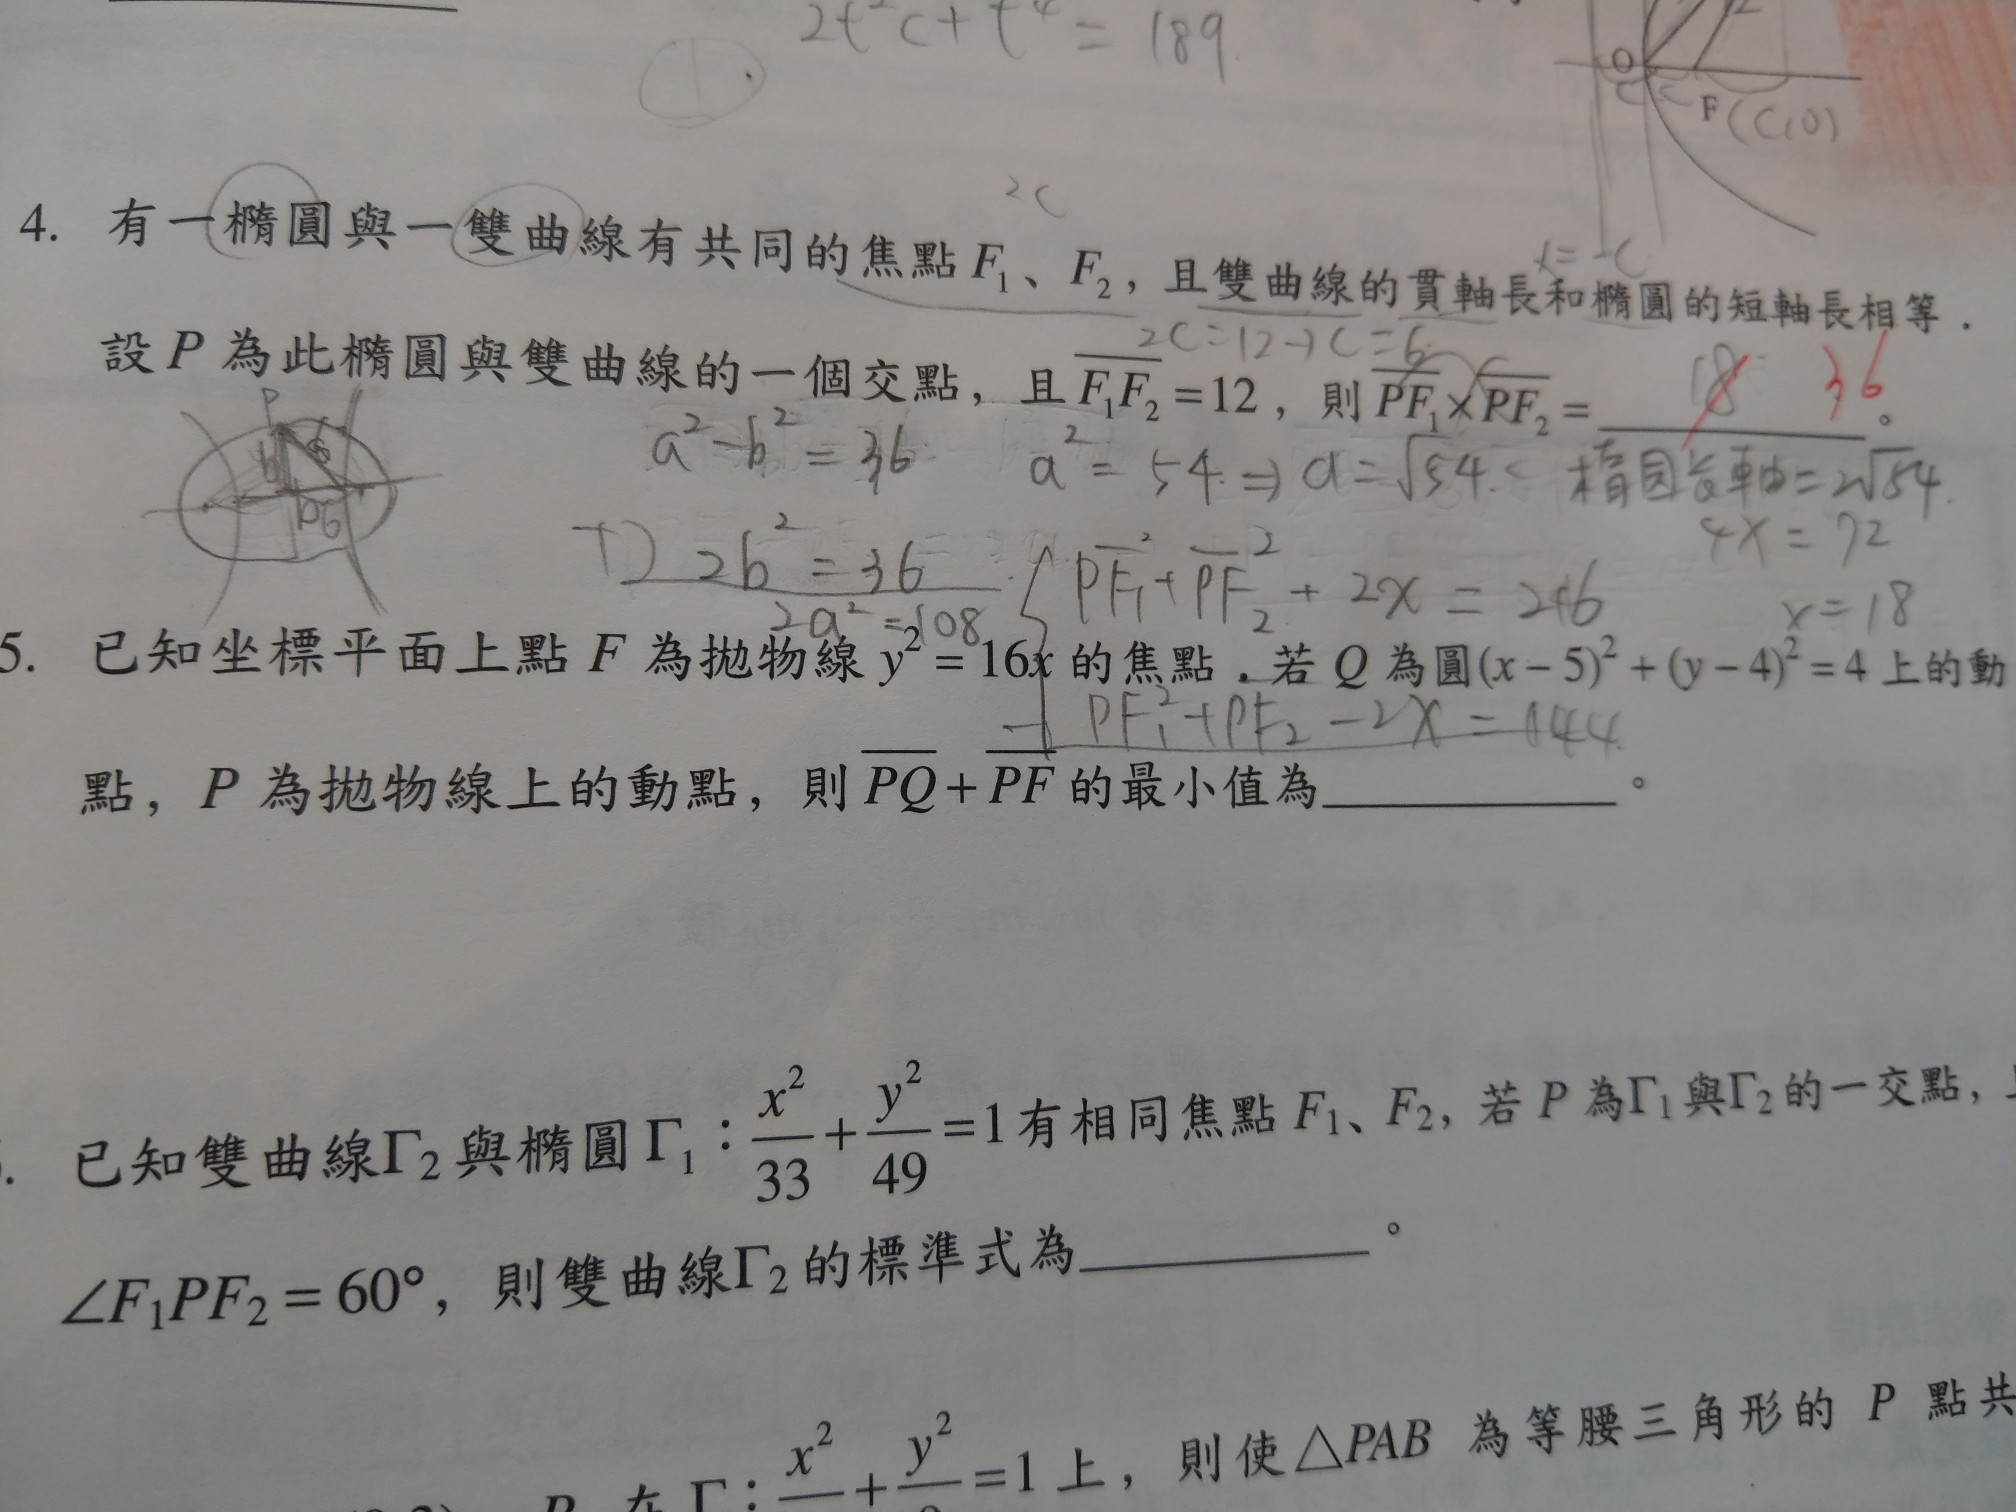 2t²c + t⁴ = 189
O
F (c,0)
2c
4. 有一橢圓與一雙曲線有共同的焦點 F₁、F₂，且雙曲線的貫軸長和橢圓的短軸長相等．
x = -c
2c=12→c=6
設 P 為此橢圓與雙曲線的一個交點，且 F₁F₂ = 12，則 PF₁ × PF₂ = 18 36 。
P
b
6
a² - b² = 36
a² = 54 ⇒ a = √54
橢圓長軸 = 2√54
4x = 72
+) 2b² = 36
PF₁² + PF₂² + 2x = 216
x = 18
2a² = 108
5. 已知坐標平面上點 F 為拋物線 y² = 16x 的焦點．若 Q 為圓(x − 5)² + (y − 4)² = 4 上的動
- PF₁² + PF₂ - 2x = 144
點，P 為拋物線上的動點，則 PQ + PF 的最小值為 。
. 已知雙曲線Γ₂與橢圓 Γ₁：x²/33 + y²/49 = 1有相同焦點 F₁、F₂，若 P 為Γ₁與Γ₂的一交點，
∠F₁PF₂ = 60°，則雙曲線Γ₂的標準式為 。
在 Γ：x² + y² = 1 上，則使△PAB 為等腰三角形的 P 點共